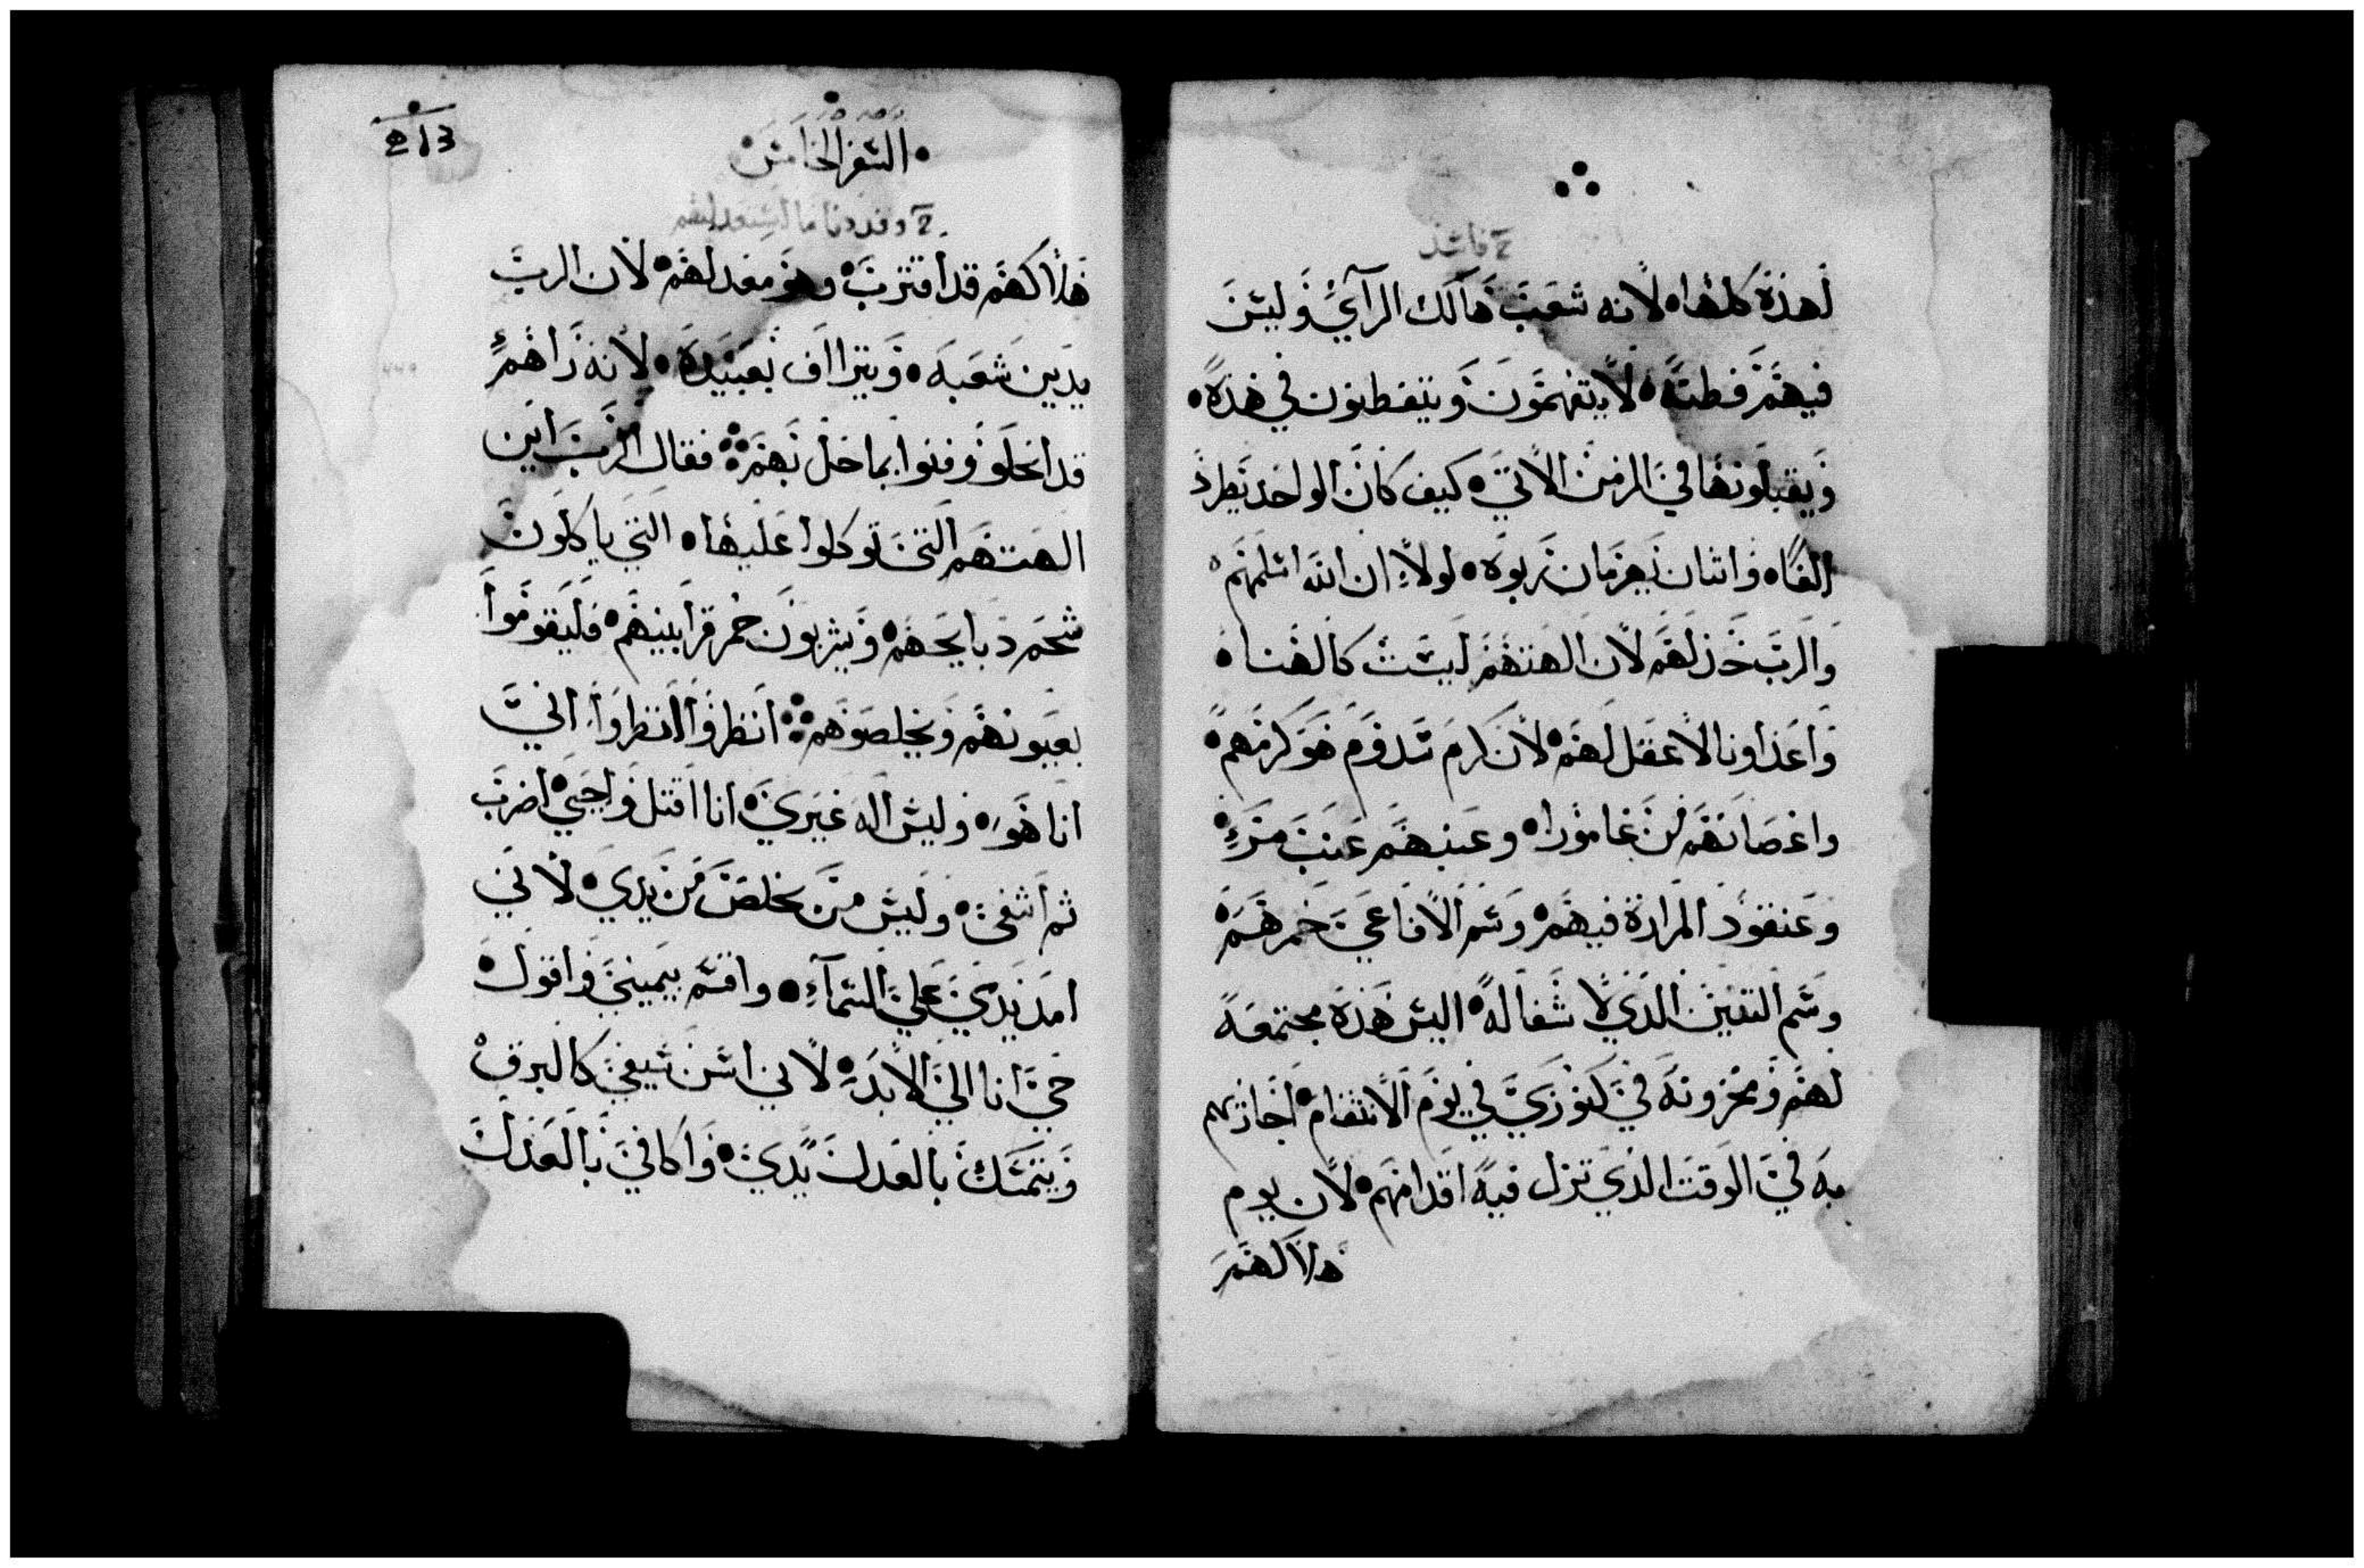 خ فاسد
لهذه كلها لانه شعب هالك الراي وليس
فيهم فطنة لا يتفهمون ويتفطنون في هذه
ويقبلونها في الزمن الاتي كيف كان الواحد يطرد
الفا واثنان يهزمان ربوه لولا ان الله اسلمهم
والرب خذلهم لان الهتهم ليست كالهنا
واعداونا لا عقل لهم لان كرم سدوم هو كرمهم
واغصانهم من غامورا وعنبهم عنب مر
وعنقود المرارة فيهم وسم الافاعي خمرهم
وسم التنين الذي لا شفا له اليس هذه مجتمعة
لهم ومخزونه في كنوزي في يوم الانتقام اجازيهم
به في الوقت الذي تزل فيه اقدامهم لان يوم
هلاكهم
السفر الخامس
213
هلاكهم قد اقترب وهو معد لهم لان الرب
يدين شعبه ويتراف بعبيده لانه راهم
قد انحلو وفنوا بما حل بهم فقال الرب اين
الهتهم التي توكلوا عليها التي ياكلون
شحم دبايحهم ويشربون خمر قرابينهم فليقوموا
يعينونهم ويخلصوهم انظروا انظروا اني
انا هو وليس اله غيري انا اقتل واحيي اضرب
ثم اشفي وليس من يخلص من يدي لاني
امد يدي علي السماء واقسم بيميني واقول
حي انا الي الابد لاني اسن سيفي كالبرق
ويتمسك بالعدل يدي واكافي بالعدل